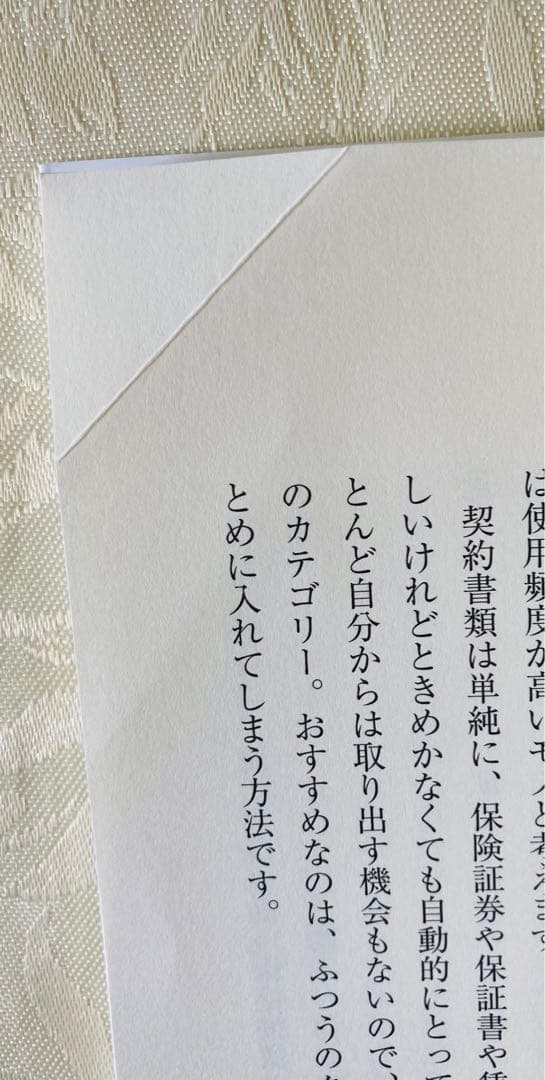 は使用頻度が高いモノと考えます
契約書類は単純に、保険証券や保証書や賃
しいけれどときめかなくても自動的にとって
とんど自分からは取り出す機会もないので、
のカテゴリー。おすすめなのは、ふつうのク
とめに入れてしまう方法です。